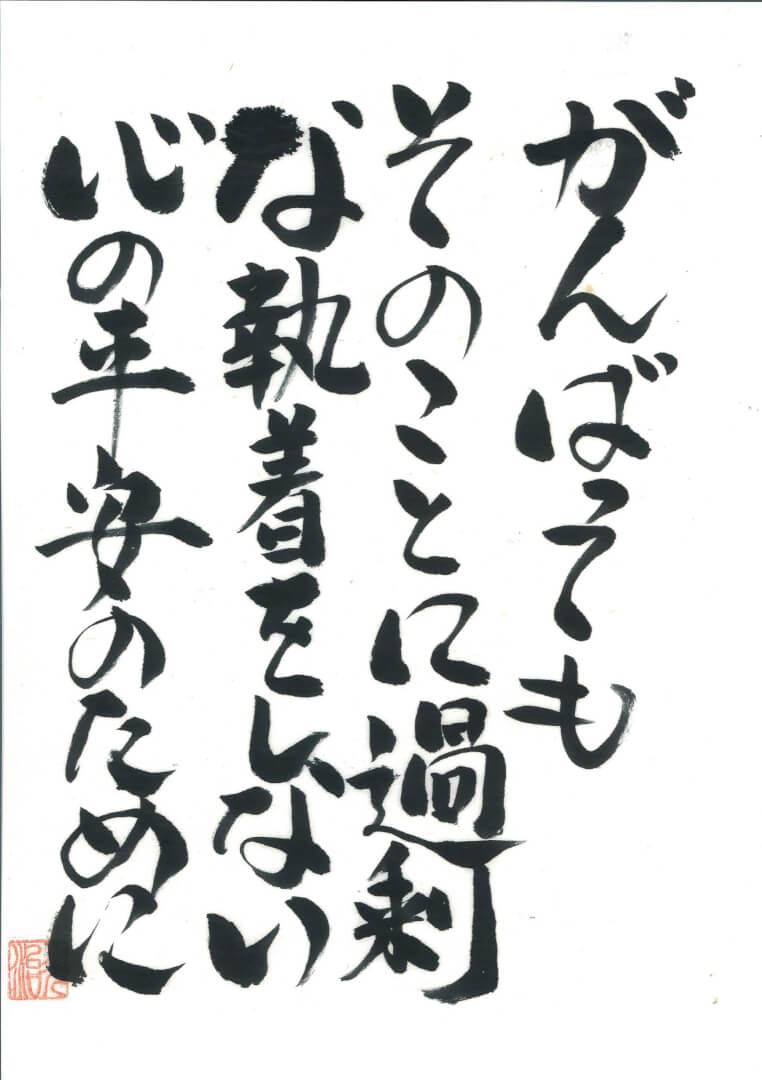 がんばっても
そのことに過剰
な執着をしない
心の平安のために